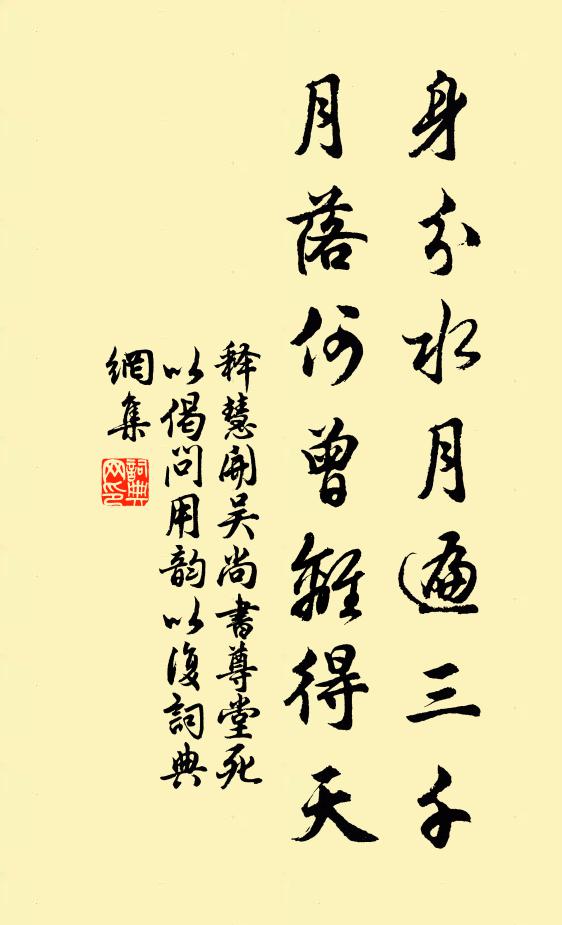 身分水月遍三千
月落何曾離得天
释慧開吴尚書尊堂死
以偈問用韵以復詞典
網集
詞典网印